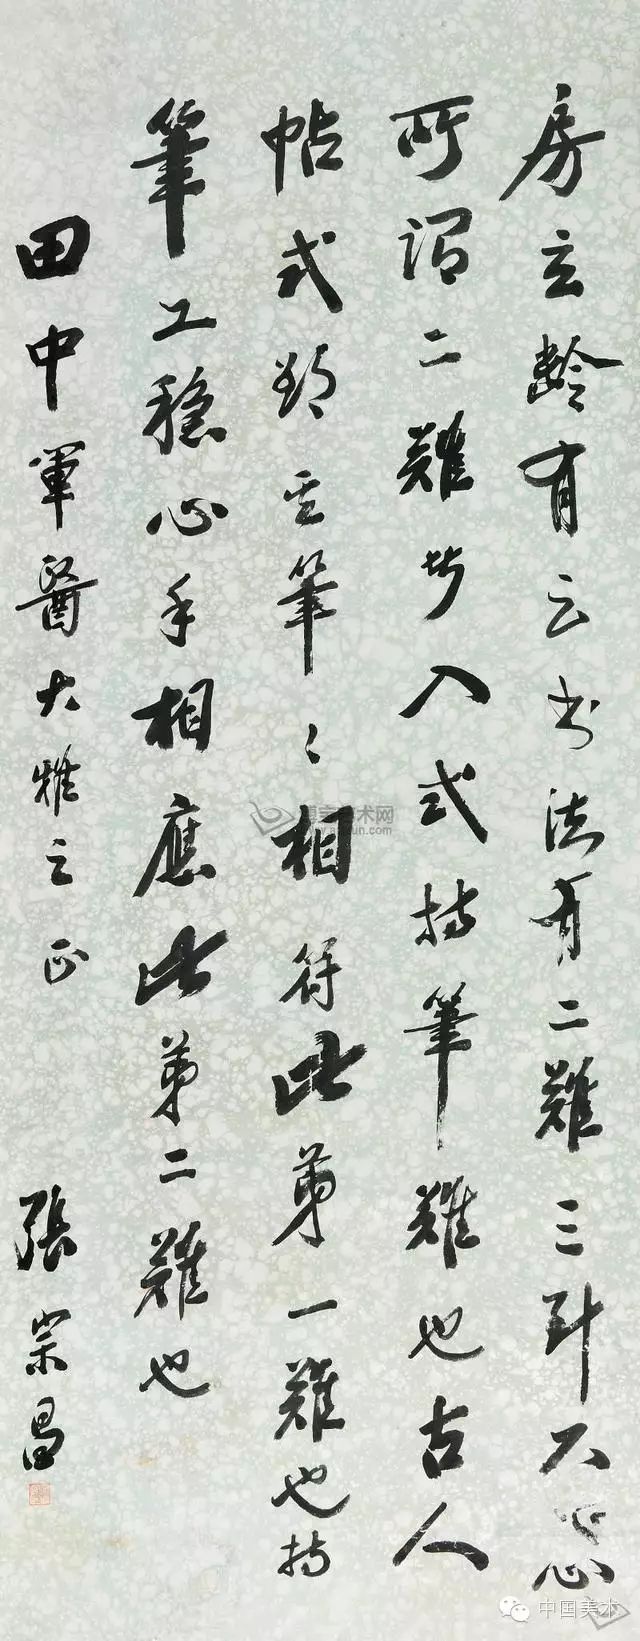 房玄齡有云书法有二難三到不忘
所謂二難 入式持筆難也古人
帖式 筆〻相符此第一難也持
筆工穩心手相應此第二難也
田中軍醫大雅之正
張宗昌
中国美术